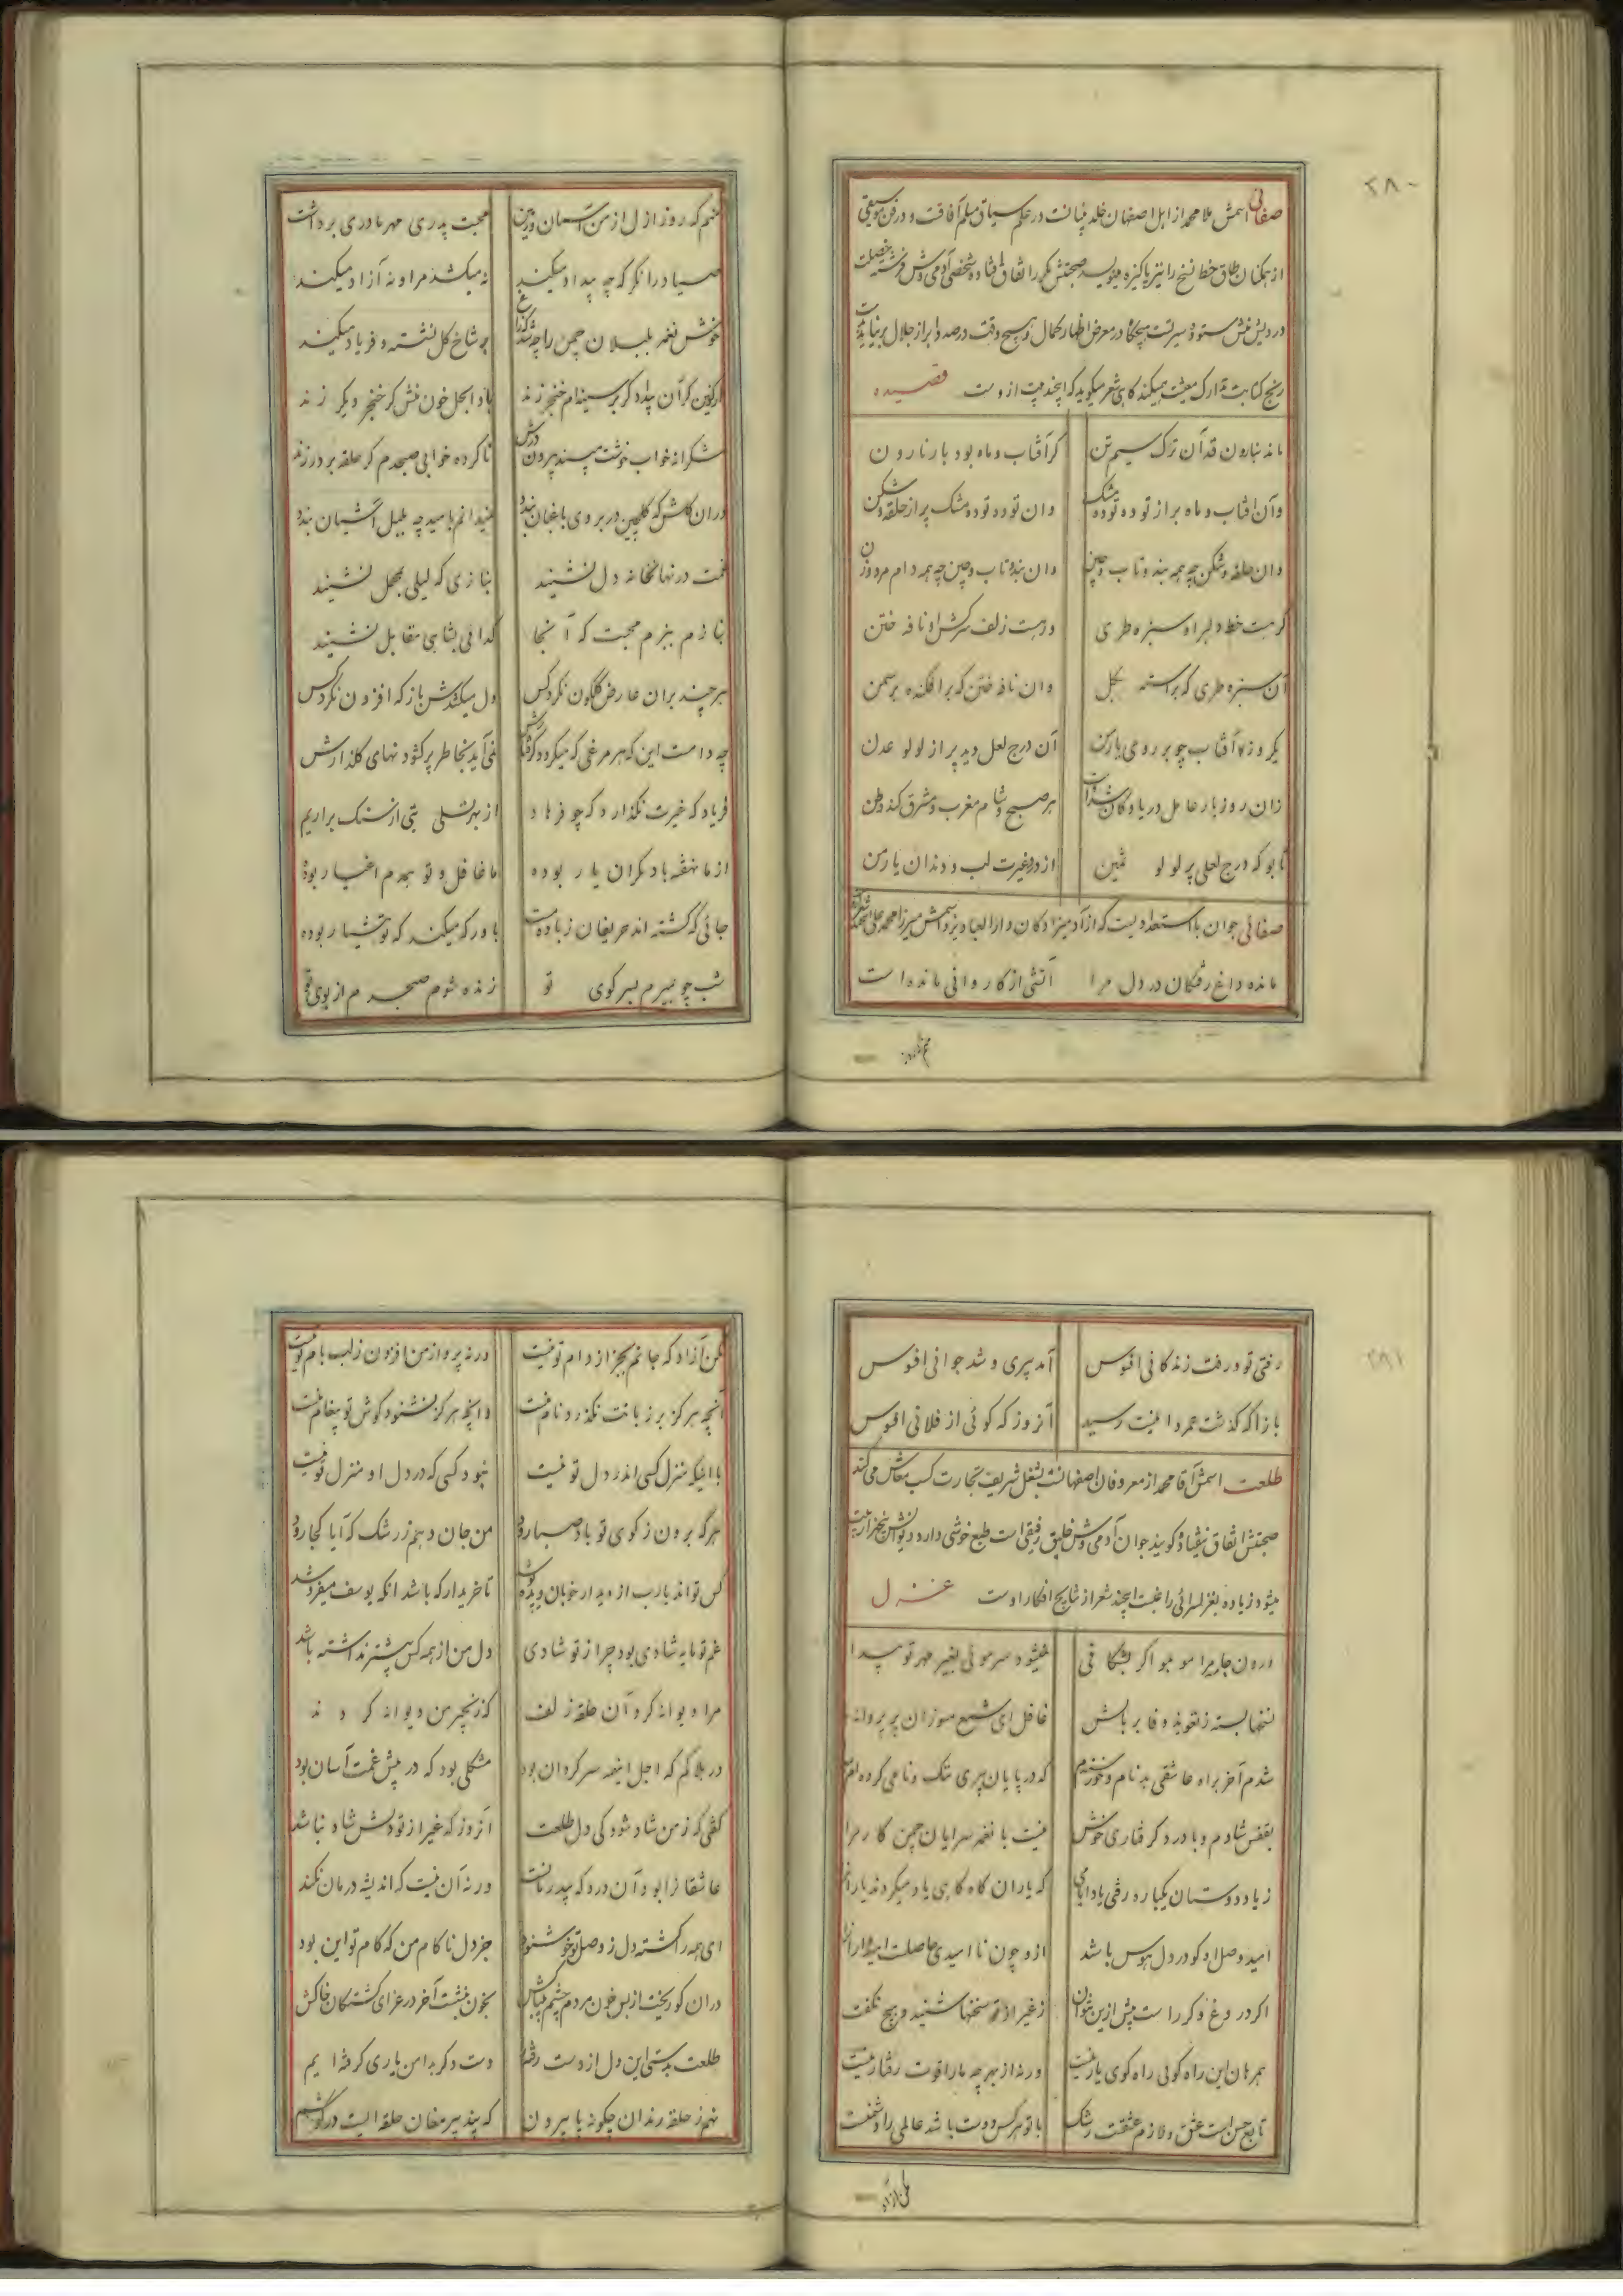 ۲۸۰
صفائی اسمش ملا محمد از اهل اصفهان خلد بنیانت در علم سیاق مسلم آفاقت و در فن موسیقی
از همکنان طاق خط نسخ را نیز پاکیزه مینویسد صحبتش مکرر اتفاق افتاده شخصی آدمی وش فرشته خصلت
درویش منش ستوده سیرتست هیچگاه در معرض اظهار کمال و هیچ وقت در صدد ابراز جلال بر نیامده
رنج کتابت تدارک معیشت میکند گاهی شعر میگوید که اینچند بیت ازوست قصیده
ماند بنارون قد آن ترک سیم تن گر آفتاب و ماه بود بار نارون
وان آفتاب و ماه پر از توده توده مشک وان توده توده مشک پر از حلقه و شکن
وان حلقه و شکن چه همه بند و تاب و چین وان بند و تاب و چین چه همه دام مرد و زن
گر هست خط دلبر او سبزه طری ور هست زلف سرکش او نافه ختن
آن سبزه طری که براسته بگل وان نافه ختن که پراکنده بر سمن
یکروز آفتاب چو بر روی یار من آن درج لعل دید پر از لولو عدن
زان روز باز عامل دریا و کان شدست هر صبح و شام مغرب و مشرق کند وطن
تا بو که درج لعلی پر لولو ثمین از دو غیرت لب و دندان یار من
صفائی جوان با استعدادیست که از آدمیزادکان دارالعباد یزد و اسمش میرزا محمد علی
مانده داغ رفتگان در دل مرا آتشی از کاروانی مانده است
منم که روز ازل از من آسمان و زمین محبت پدری مهر مادری برداشت
صیاد را نگر که چه بیداد میکند نه میکشد مرا و نه آزاد میکند
خوش نغمه بلبلان چمن را چه شد که زاغ بر شاخ گل نشسته و فریاد میکند
از کین گر آن بیدادگر بر سینه ام خنجر زند بادا بحل خون منش گر خنجر دیگر زند
شکرانه خواب خوشت مپسند بیرون درش ناکرده خوابی صبحدم گر حلقه بر در زند
در ان گلشن که گلچین در بروی باغبان بندد نمیدانم بامید چه بلبل آشیان بندد
غمت در نهانخانه دل نشیند بنازی که لیلی بمحمل نشیند
بنازم ببزم محبت که آنجا گدائی بشاهی مقابل نشیند
هر چند بران عارض گلگون نگرد کس دل میکندش باز که افزون نگرد کس
چه دامست این که هر مرغی که میگردد گرفتارش نمی آید بخاطر پر گشودنهای گلزارش
فریاد که غیرت نگذارد که چو فرهاد از بهر تسلی بتی از سنگ براریم
از ما نهفته با دگران یار بوده ما غافل و تو همدم اغیار بوده
جائی که گشته اند حریفان ز باده مست باور که میکند که تو هشیار بوده
شب چو بمیرم بسر کوی تو زنده شوم صبحدم از بوی تو
۲۸۱
رفتی تو و رفت زندگانی افسوس آمد پیری و شد جوانی افسوس
بازآ که گذشت عمر و اینت رسید آنروز که گوئی از فلانی افسوس
طلعت اسمش آقا محمد از معروفان اصفهانست بشغل شریف تجارت کسب معاش می کند
صحبتش اتفاق نیفتاد گویند جوان آدمی وش خلیق رفیقی است طبع خوشی دارد دیوانش
میشود زیاده بغزلسرائی راغبست اینچند شعر از نتایج افکار اوست غزل
درون جامه مرا مو بمو اگر بشکافی نمیشود سر موئی بغیر مهر تو پیدا
ننهها بسته ز تعویذ وفا بر بالش غافل ای شمع مسوزان پر پروانه
شدم آخر براه عاشقی بدنام و خورسندم که در پایان پیری ننگ و نامی کرده ام
بقفس شادم و با درد گرفتاری خوش نیست با نغمه سرایان چمن کار مرا
ز یاد دوستان یکباره رفتی یاد ایامی که یاران گاه گاهی یاد میکردند یاران
امید وصل او گو در دل بوس باشد ازو چون ناامیدی حاصلست امیدواران
اگر دروغ و گر راست پیش ازین نتوان ز غیر از تو سخنها شنید و هیچ نگفت
همرهان این راه گوئی راه کوی یار نیست ورنه از بهر چه ما را قوت رفتار نیست
تابع حسن است عشق و لازم عشقست رشک با تو هر کس دوست باشد عالمی را دشمنست
مکن آزاد که جانم بجز از دام تو نیست ورنه پرواز من افزون ز لب بام تو نیست
آنچه هرگز بر زبانت نگذرد نام منست وانچه هرگز نشنود گوش تو پیغام منست
با اینکه منزل کسی اندر دل تو نیست نبود کسی که در دل او منزل تو نیست
هر گه برون ز کوی تو باد صبا رود من جان دهم ز رشک که آیا کجا رود
کس تواند یارب از دیدار خوبان دیده تا خریدار که باشد انکه یوسف میفروشد
غم تو مایه شادی بود چرا ز تو شادی دل من از همه کس بیشتر نداشته باشد
مرا دیوانه کرد آن حلقه زلف که زنجیر من دیوانه کردند
در بلا کم که اجل اینهمه سرگردان بود مشکلی بود که در پیش غمت آسان بود
گفتی که ز من شاد شود کی دل طلعت آنروز که غیر از تو دلش شاد نباشد
عاشقانرا بود آن درد که بیدرمانست ورنه آن نیست که اندیشه درمان نکند
ای همه را گشته دل ز وصل تو خوشنود جز دل ناکام من که کام تو این بود
در ان کو ریخت از بس خون مردم چشم بخون بنشست آخر در عزای کشتگان خاکش
طلعت بدستی این دل از دست رفته دست دگر بدامن یاری گرفته ایم
نهم ز حلقه رندان چگونه پا بیرون که پند پیر مغان حلقه ایست در گوشم